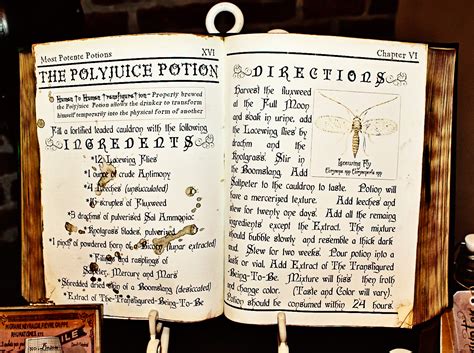 Most Potente Potions XVI
THE POLYJUICE POTION
Human To Human Transfiguration - Properly brewed
the Polyjuice Potion allows the drinker to transform
himself temporarily into the physical form of another
Fill a fortified leaded cauldron with the following
INGREDENTS
*12 Lacewing Flies
*1 ounce of crude Antimony
*4 Leeches (unsuculated)
*16 scruples of Fluxweed
*3 drachms of pulverised Sal Ammoniac
*Knotgrass blades, pulverised
*1 pinch of powdered horn of a Bicorn (lunar extracted)
*Filings and raspings of
Saltpeter, Mercury and Mars
*Shredded dried skin of a Boomslang (desiccated)
*Extract of The-Transfigured-Being-To-Be
Chapter VI
DIRECTIONS
Harvest the fluxweed
at the Full Moon
and soak in urine, add
the Lacewing flies by
drachm and the
Knotgrass. Stir in
the Boomslang. Add
Saltpeter to the cauldron to taste. Potion will
have a mercurial texture. Add leeches and
stew for twenty one days. Add all the remaining
ingredients except the Extract. The mixture
should bubble slowly and resemble a thick dark
mud. Stew for two weeks. Pour potion into a
flask or vial. Add Extract of The Transfigured
Being-To-Be. Mixture will hiss, then froth
and change color. (Taste and Color will vary).
Potion should be consumed within 24 hours.
Lacewing Fly